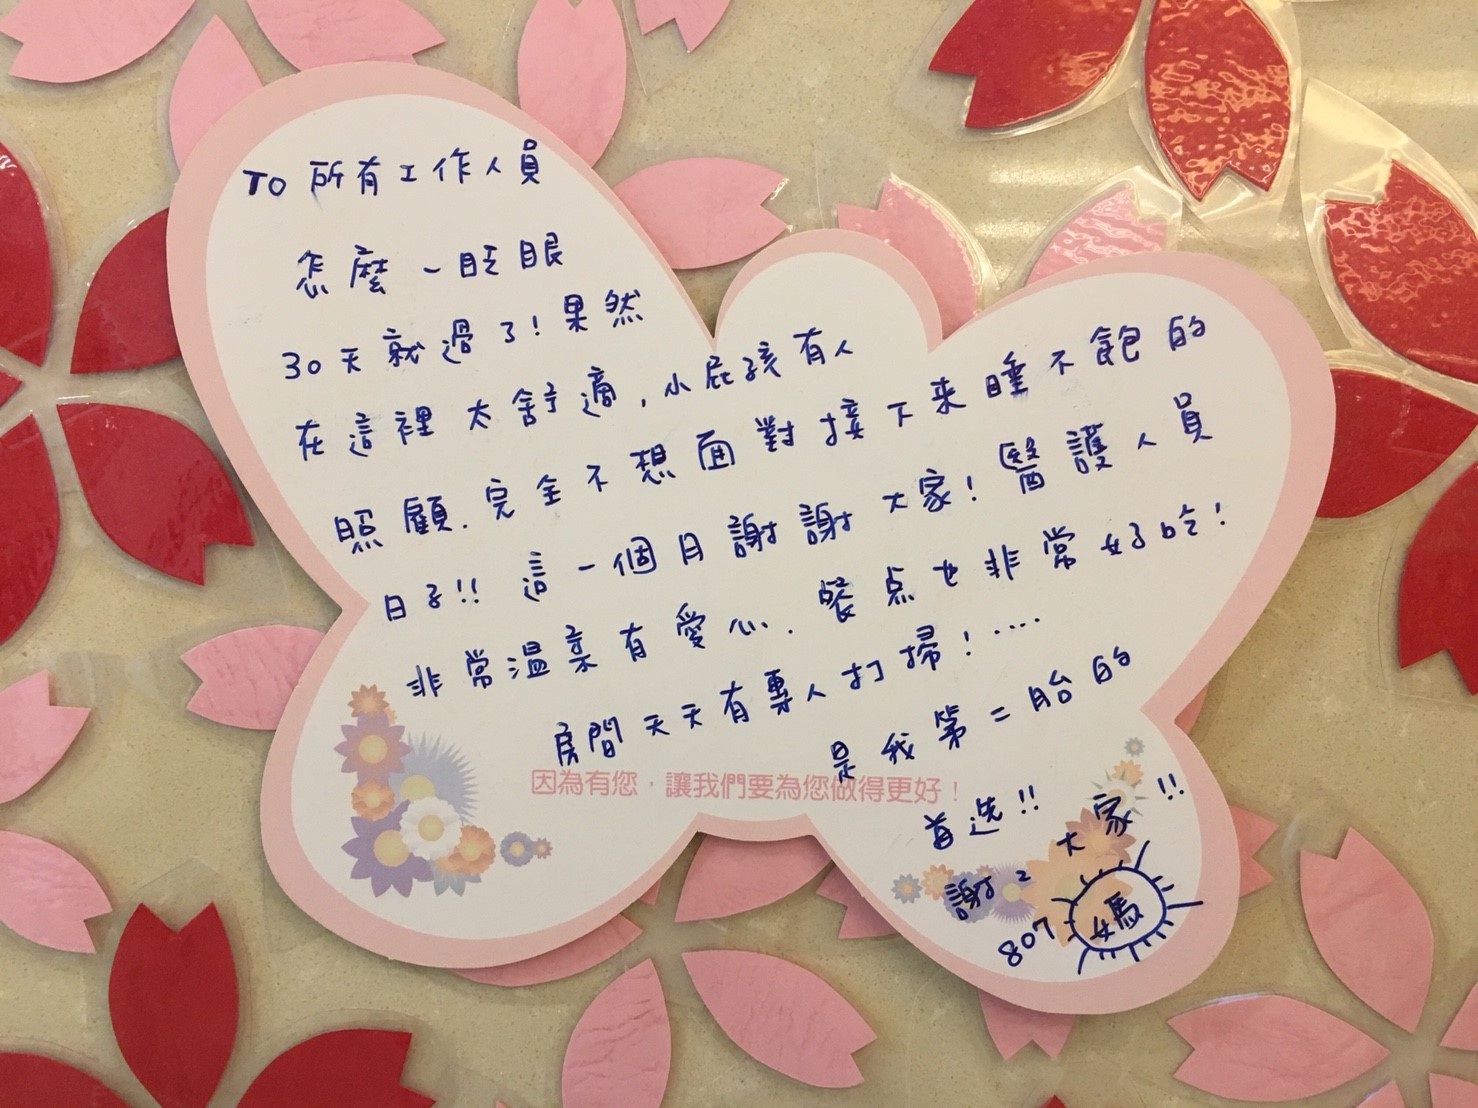 TO 所有工作人員
怎麼一眨眼
30天就過了!果然
在這裡太舒適,小屁孩有人
照顧.完全不想面對接下來睡不飽的
日子!! 這一個月謝謝大家!醫護人員
非常溫柔有愛心.餐点也非常好吃!
房間天天有專人打掃!....
是我第二胎的
首选!!
謝2大家!!
807 媽
因為有您,讓我們要為您做得更好!